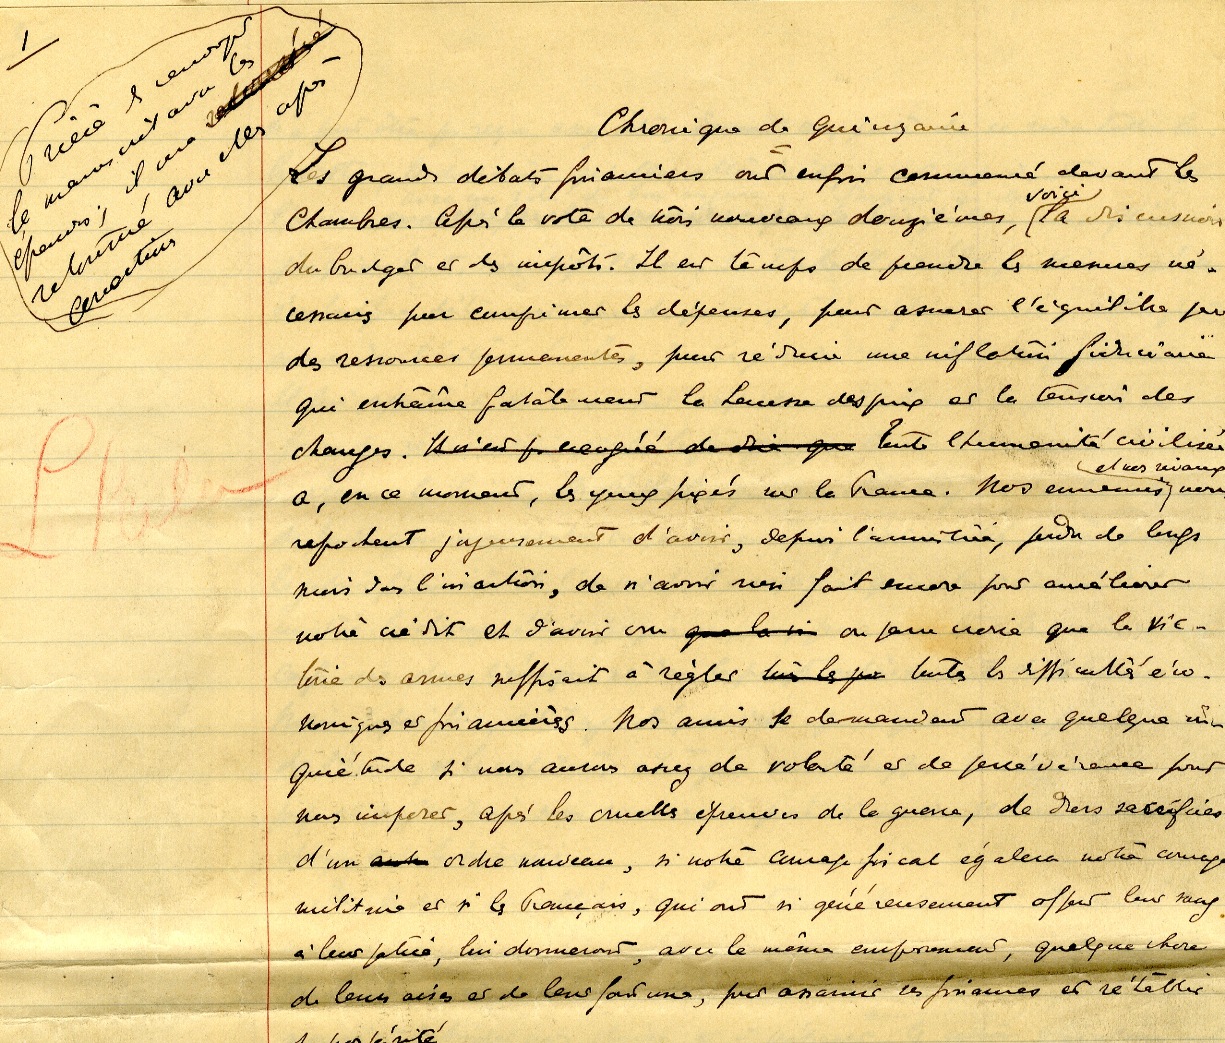 1
Prière de renvoyer
le manuscrit avec les
épreuves; il sera retourné
retourné avec elles après
correction
Chronique de Quinzaine
Les grands débats financiers ont enfin commencé devant les
Chambres. Après le vote de trois nouveaux douzièmes, voici la discussion
du budget et des impôts. Il est temps de prendre les mesures né-
cessaires pour comprimer les dépenses, pour assurer l'équilibre par
des ressources permanentes, pour réduire une inflation fiduciaire
qui entraîne fatalement la hausse des prix et la tension des
changes. Il n'est pas exagéré de dire que Toute l'humanité civilisée
a, en ce moment, les yeux fixés sur la France. Nos ennemis et nos rivaux nous
reprochent joyeusement d'avoir, depuis l'armistice, perdu de longs
mois dans l'inaction, de n'avoir rien fait encore pour améliorer
notre crédit et d'avoir cru que la vi ou paru croire que la vic-
toire des armes suffisait à régler tous les pr toutes les difficultés éco-
nomiques et financières. Nos amis se demandent avec quelque in-
quiétude si nous aurons assez de volonté et de persévérance pour
nous imposer, après les cruelles épreuves de la guerre, de durs sacrifices
d'un autre ordre nouveau, si notre courage fiscal égalera notre courage
militaire et si les Français, qui ont si généreusement offert leur sang
à leur patrie, lui donneront, avec le même empressement, quelque chose
de leurs aises et de leur fortune, pour assainir ses finances et rétablir
sa prospérité